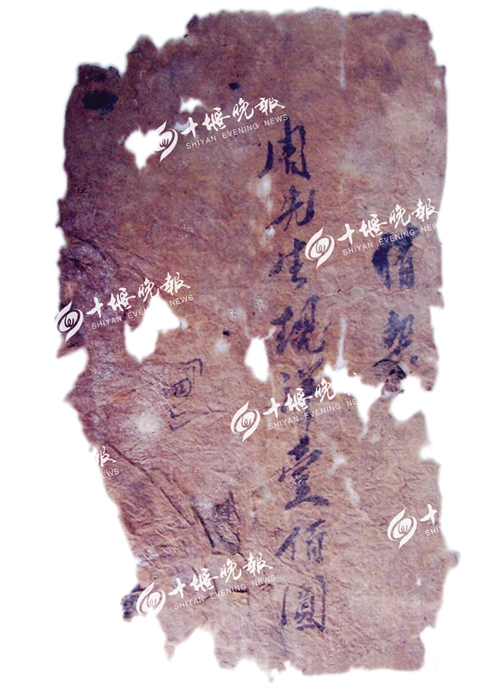 借契
周先生现洋壹佰圆
十堰晚报
SHIYAN EVENING NEWS
十堰晚报
SHIYAN EVENING NEWS
十堰晚报
SHIYAN EVENING NEWS
十堰晚报
SHIYAN EVENING NEWS
十堰晚报
SHIYAN EVENING NEWS